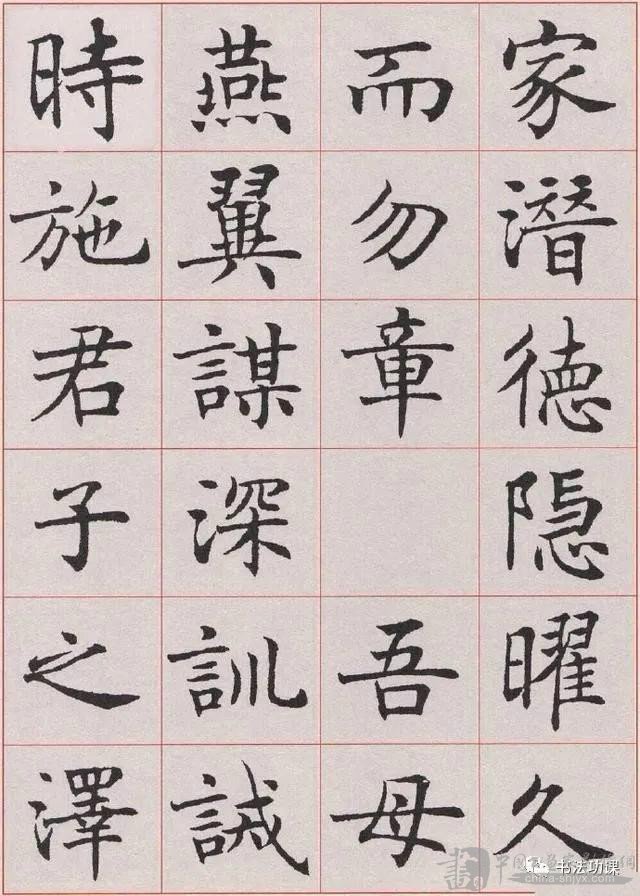 家潜德隐曜久
而勿章吾母
燕翼謀深訓誡
時施君子之澤
书法功课
china-shjyx.com